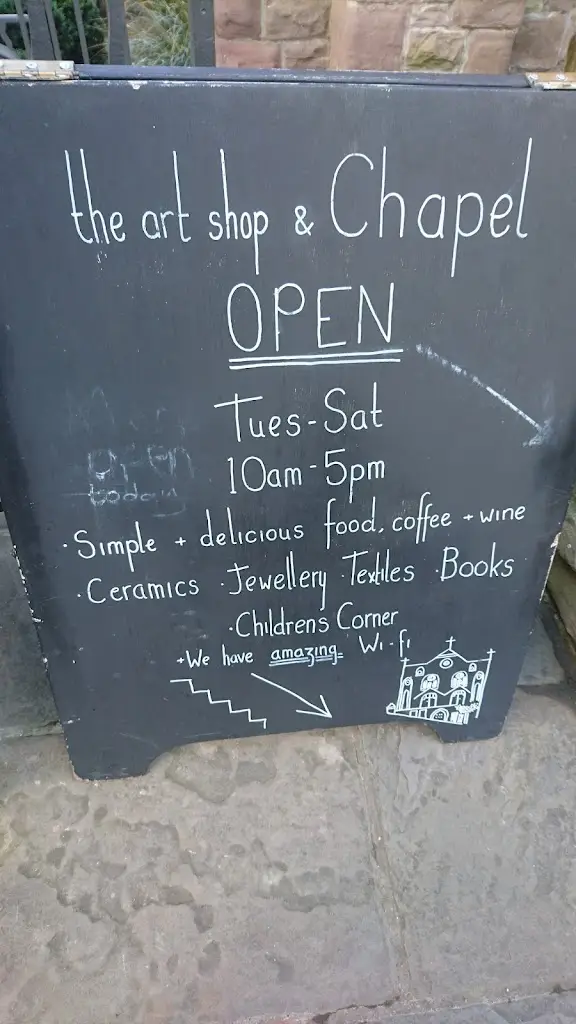 the art shop & Chapel
OPEN
Tues-Sat
10am-5pm
·Simple + delicious food, coffee + wine
·Ceramics ·Jewellery ·Textiles ·Books
·Childrens Corner
+We have amazing Wi-fi